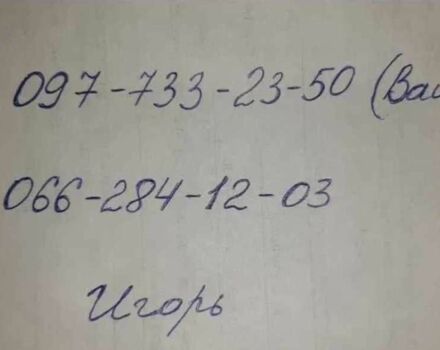 097-733-23-50
066-284-12-03
Игорь